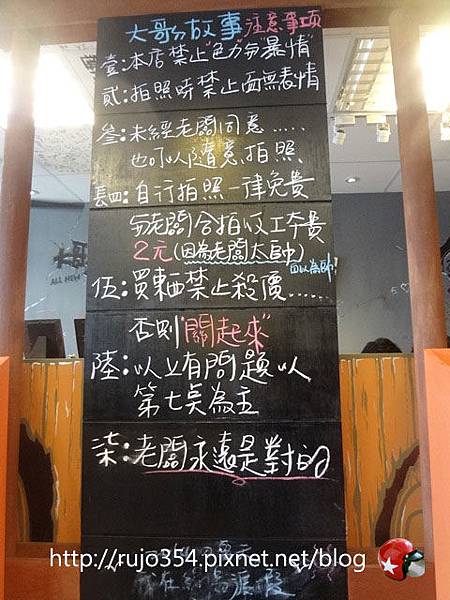 大哥ㄉ故事 注意事項
壹:本店禁止"色力ㄉ暴情"
貳:拍照時禁止面無表情
叁:未經老闆同意.....
也可以隨意拍照、
肆:自行拍照一律免費
ㄉ老闆合拍收工本費
2元(因為老闆太帥)
自以為帥!
伍:買東西禁止殺價......
否則"關起來"
陸:以上有問題以
第七點為主
柒:老闆永遠是對的
ALL NEW
http://rujo354.pixnet.net/blog